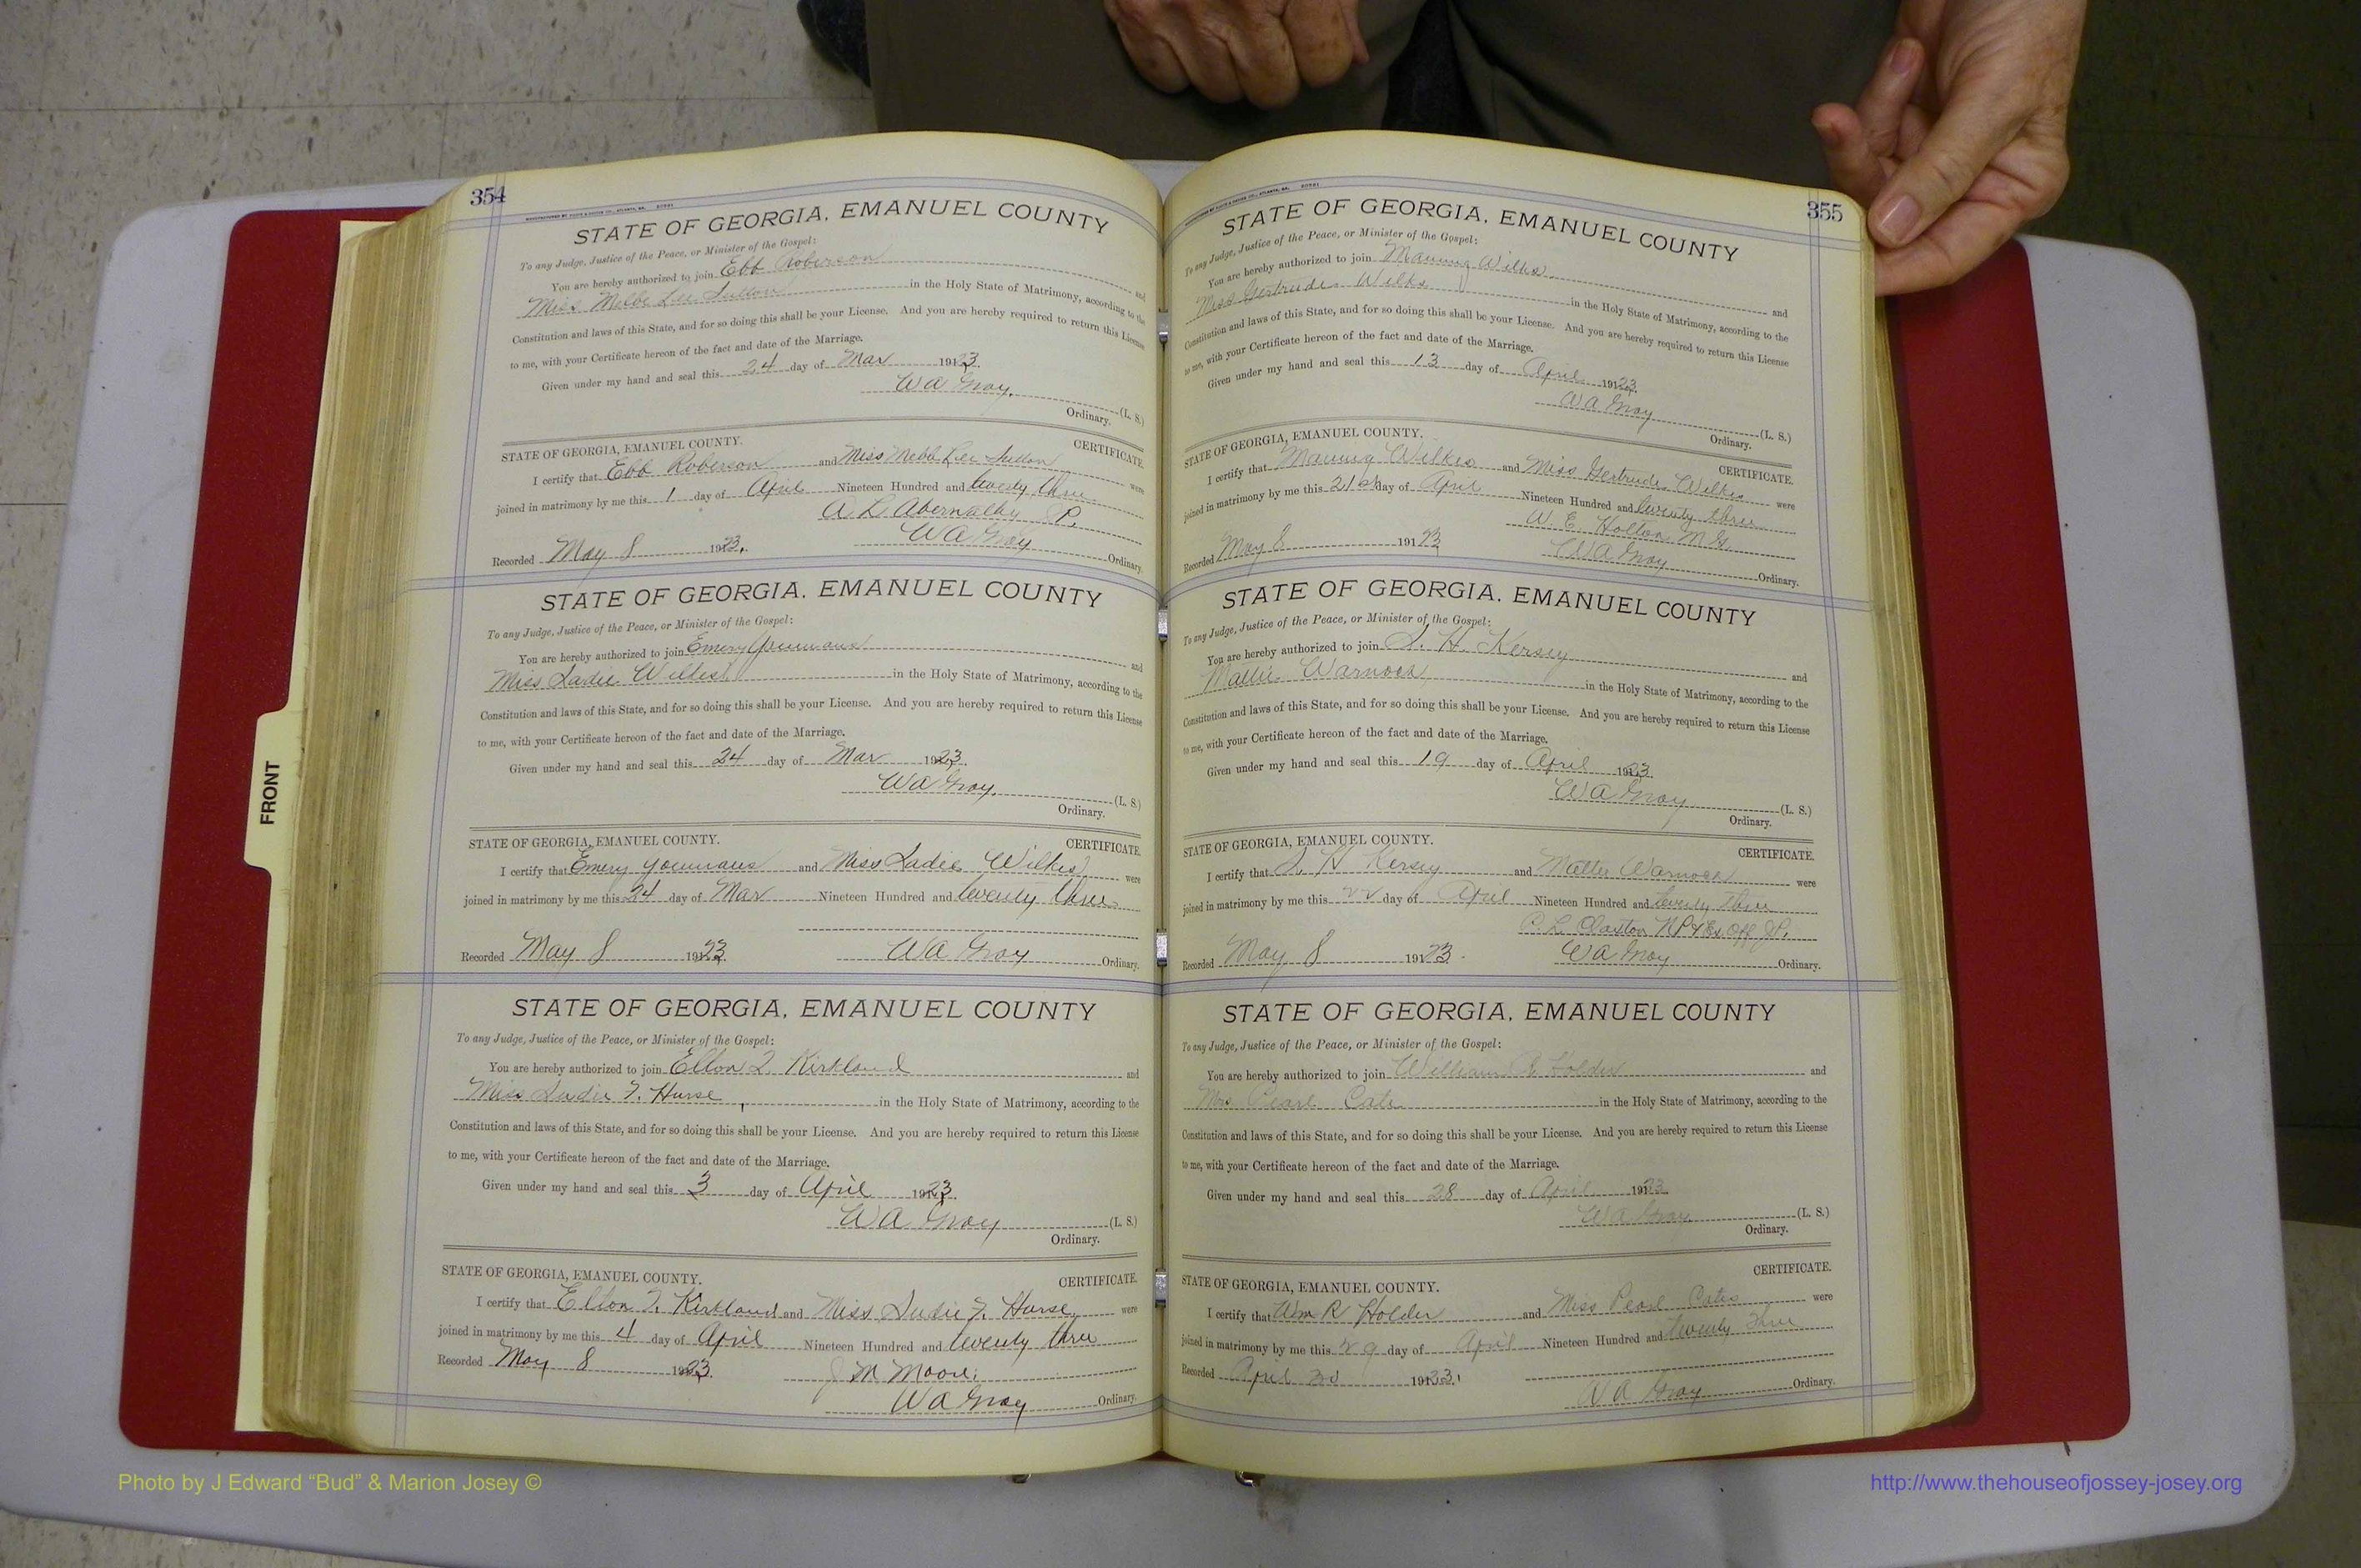 354
STATE OF GEORGIA, EMANUEL COUNTY
To any Judge, Justice of the Peace, or Minister of the Gospel:
You are hereby authorized to join Ebb Roberson and
Miss Melb Lee Sutton in the Holy State of Matrimony, according to the
Constitution and laws of this State, and for so doing this shall be your License. And you are hereby required to return this License
to me, with your Certificate hereon of the fact and date of the Marriage.
Given under my hand and seal this 24 day of Mar 1923.
W A Gray. (L. S.)
Ordinary.
STATE OF GEORGIA, EMANUEL COUNTY. CERTIFICATE.
I certify that Ebb Roberson and Miss Mebb Lee Sutton were
joined in matrimony by me this 1 day of April Nineteen Hundred and twenty three
A L Abernathy P.
Recorded May 8 1923. W A Gray Ordinary.
STATE OF GEORGIA, EMANUEL COUNTY
To any Judge, Justice of the Peace, or Minister of the Gospel:
You are hereby authorized to join Emery Youmans and
Miss Sadie Wilkes in the Holy State of Matrimony, according to the
Constitution and laws of this State, and for so doing this shall be your License. And you are hereby required to return this License
to me, with your Certificate hereon of the fact and date of the Marriage.
Given under my hand and seal this 24 day of Mar 1923.
W A Gray. (L. S.)
Ordinary.
STATE OF GEORGIA, EMANUEL COUNTY. CERTIFICATE.
I certify that Emery Youmans and Miss Sadie Wilkes were
joined in matrimony by me this 24 day of Mar Nineteen Hundred and twenty three
Recorded May 8 1923. W A Gray Ordinary.
STATE OF GEORGIA, EMANUEL COUNTY
To any Judge, Justice of the Peace, or Minister of the Gospel:
You are hereby authorized to join Elton T. Kirkland and
Miss Sudie F. Hurse in the Holy State of Matrimony, according to the
Constitution and laws of this State, and for so doing this shall be your License. And you are hereby required to return this License
to me, with your Certificate hereon of the fact and date of the Marriage.
Given under my hand and seal this 3 day of April 1923.
W A Gray (L. S.)
Ordinary.
STATE OF GEORGIA, EMANUEL COUNTY. CERTIFICATE.
I certify that Elton T. Kirkland and Miss Sudie F. Hurse were
joined in matrimony by me this 4 day of April Nineteen Hundred and twenty three
Recorded May 8 1923. J M Moore
W A Gray Ordinary.
355
STATE OF GEORGIA, EMANUEL COUNTY
To any Judge, Justice of the Peace, or Minister of the Gospel:
You are hereby authorized to join Manning Wilkes and
Miss Gertrude Wilks in the Holy State of Matrimony, according to the
Constitution and laws of this State, and for so doing this shall be your License. And you are hereby required to return this License
to me, with your Certificate hereon of the fact and date of the Marriage.
Given under my hand and seal this 13 day of April 1923.
W A Gray (L. S.)
Ordinary.
STATE OF GEORGIA, EMANUEL COUNTY. CERTIFICATE.
I certify that Manning Wilkes and Miss Gertrude Wilkes were
joined in matrimony by me this 21st day of April Nineteen Hundred and twenty three
W. E. Holton M G.
Recorded May 8 1923 W A Gray Ordinary.
STATE OF GEORGIA, EMANUEL COUNTY
To any Judge, Justice of the Peace, or Minister of the Gospel:
You are hereby authorized to join S. H. Kersey and
Mattie Warnock in the Holy State of Matrimony, according to the
Constitution and laws of this State, and for so doing this shall be your License. And you are hereby required to return this License
to me, with your Certificate hereon of the fact and date of the Marriage.
Given under my hand and seal this 19 day of April 1923.
W A Gray (L. S.)
Ordinary.
STATE OF GEORGIA, EMANUEL COUNTY. CERTIFICATE.
I certify that S H Kersey and Mattie Warnock were
joined in matrimony by me this 22 day of April Nineteen Hundred and twenty three
C. L. Claxton N.P. & Ex. Off. J.P.
Recorded May 8 1923. W A Gray Ordinary.
STATE OF GEORGIA, EMANUEL COUNTY
To any Judge, Justice of the Peace, or Minister of the Gospel:
You are hereby authorized to join William R Holder and
Mrs Pearl Cates in the Holy State of Matrimony, according to the
Constitution and laws of this State, and for so doing this shall be your License. And you are hereby required to return this License
to me, with your Certificate hereon of the fact and date of the Marriage.
Given under my hand and seal this 28 day of April 1923.
W A Gray (L. S.)
Ordinary.
STATE OF GEORGIA, EMANUEL COUNTY. CERTIFICATE.
I certify that Wm R Holder and Miss Pearl Cates were
joined in matrimony by me this 29 day of April Nineteen Hundred and twenty three
Recorded April 30 1923. W A Gray Ordinary.
FRONT
Photo by J Edward “Bud” & Marion Josey ©
http://www.thehouseofjossey-josey.org